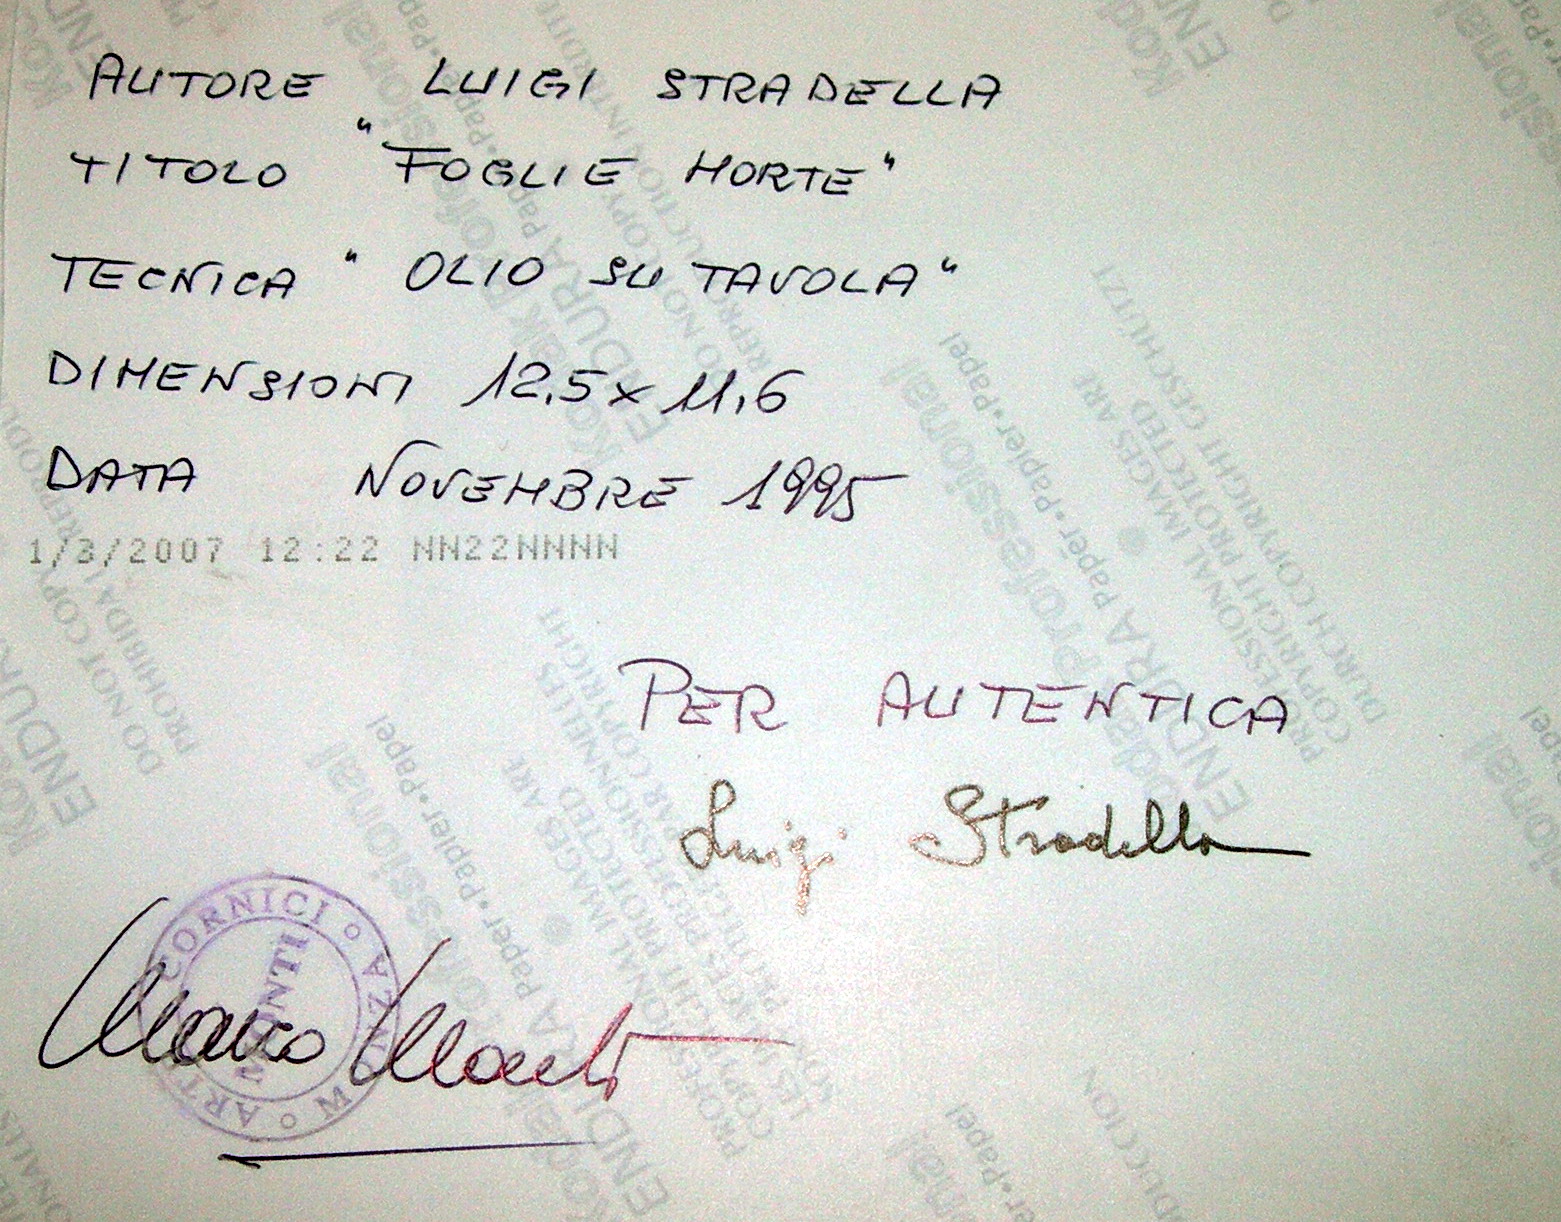 AUTORE LUIGI STRADELLA
TITOLO "FOGLIE MORTE"
TECNICA "OLIO SU TAVOLA"
DIMENSIONI 12,5 x 11,6
DATA NOVEMBRE 1995
1/3/2007 12:22 NN22NNNN
PER AUTENTICA
Luigi Stradella
Marco Monti
ARTE CORNICI MONZA
MONTI
Kodak Professional
ENDURA Paper•Papier•Papel
PROFESSIONAL IMAGES ARE
COPYRIGHT PROTECTED
DURCH COPYRIGHT GESCHÜTZT
DO NOT COPY